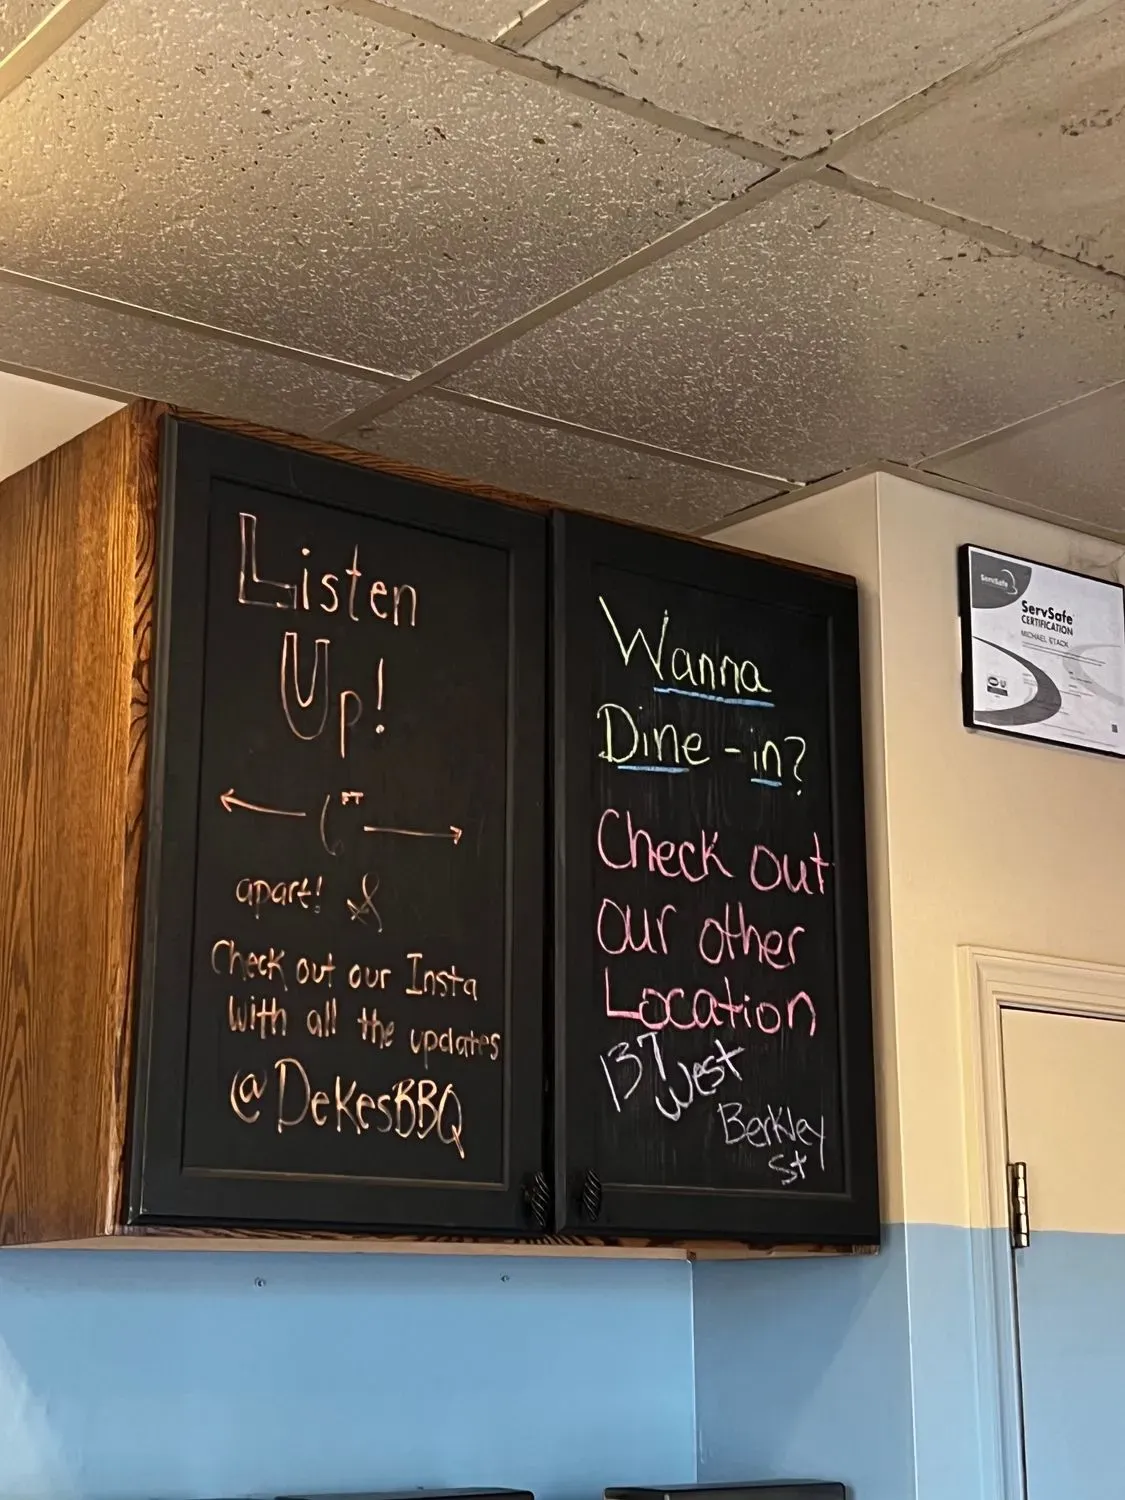 Listen
Up!
← 6 FT →
apart! &
Check out our Insta
With all the updates
@DeKesBBQ
Wanna
Dine-in?
Check out
our other
Location
137 West
Berkley
St
ServSafe
ServSafe
CERTIFICATION
MICHAEL STACK